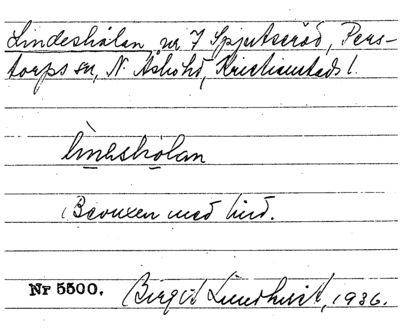 Lindeshålan, nr 7 Spjutseröd, Pers-
torps sn, N. Åsbo hd, Kristianstads l.
lineshòlan
Bevuxen med lind.
Nr 5500. Birgit Lundkvist, 1936.